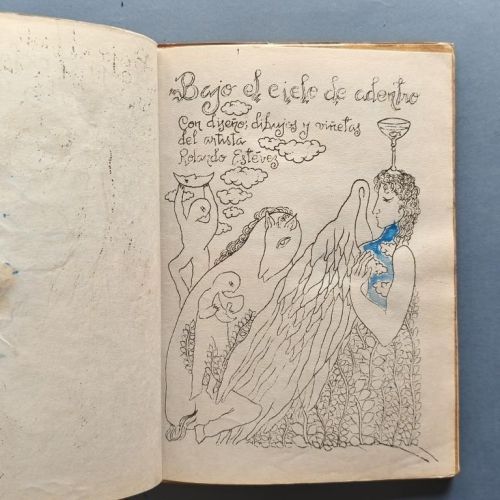 Bajo el cielo de adentro
Con diseño; dibujos y viñetas
del artista
Rolando Estévez